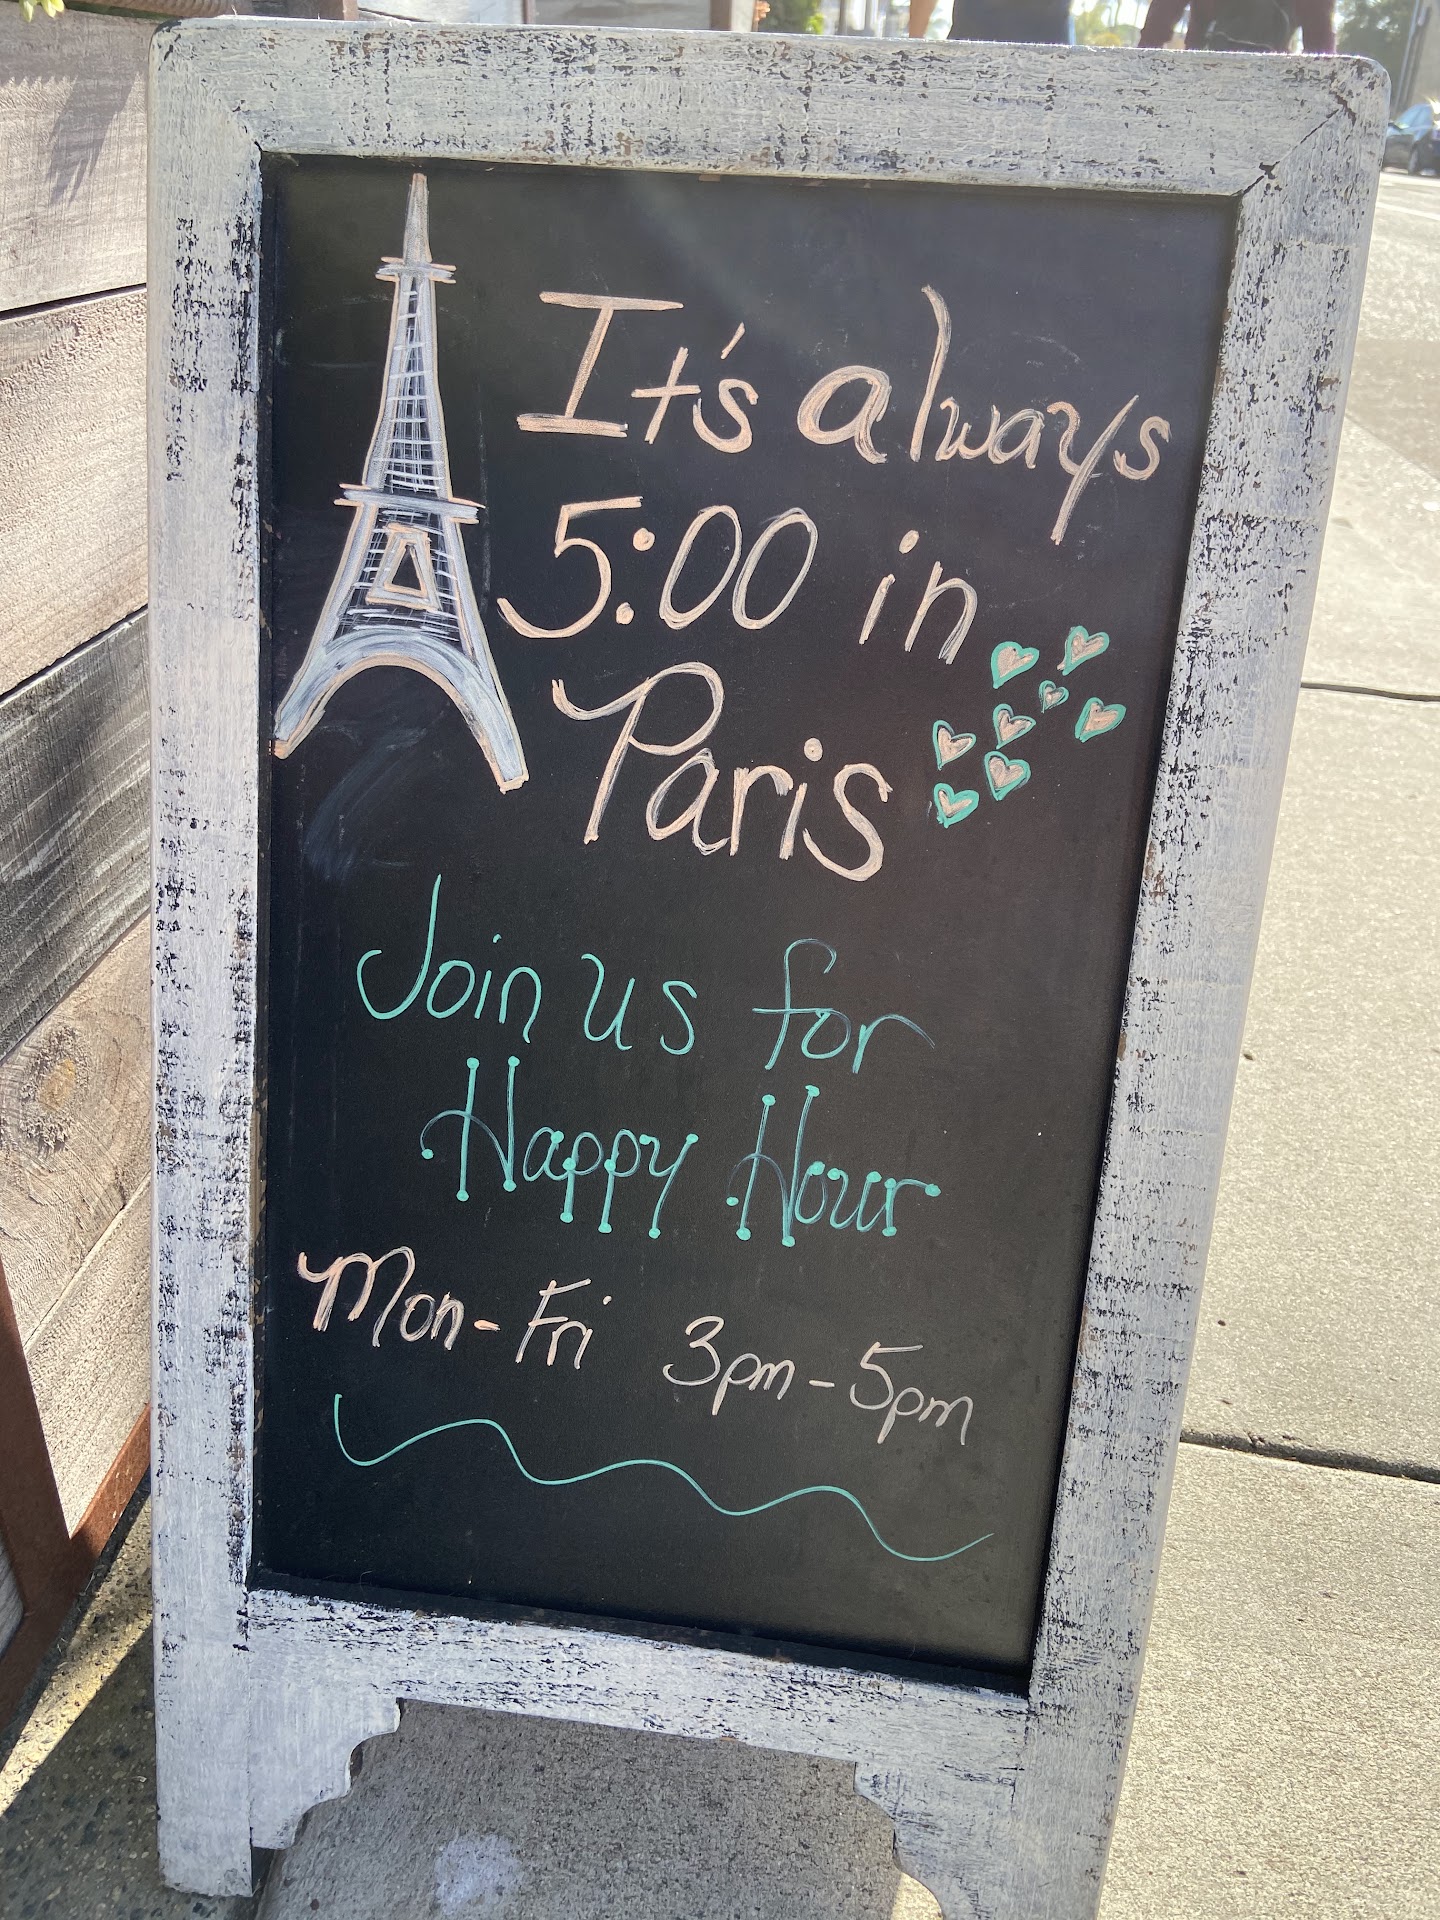 It's always
5:00 in
Paris
Join us for
Happy Hour
Mon-Fri 3pm-5pm